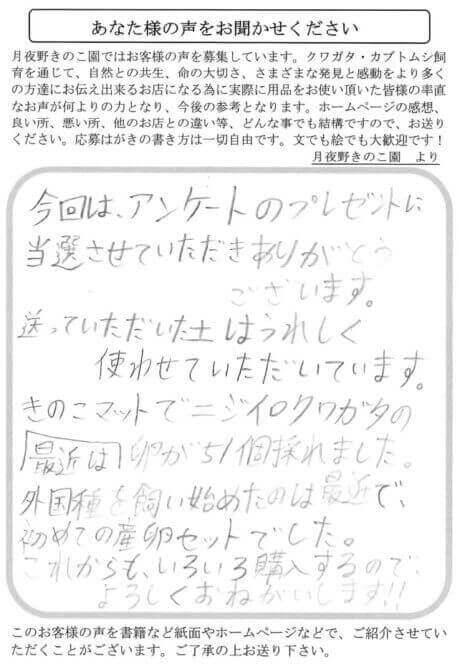 あなた様の声をお聞かせください
月夜野きのこ園ではお客様の声を募集しています。クワガタ・カブトムシ飼
育を通じて、自然との共生、命の大切さ、さまざまな発見と感動をより多く
の方達にお伝え出来るお店になる為に実際に用品をお使い頂いた皆様の率直
なお声が何よりの力となり、今後の参考となります。ホームページの感想、
良い所、悪い所、他のお店との違い等、どんな事でも結構ですので、お送り
ください。応募はがきの書き方は一切自由です。文でも絵でも大歓迎です！
月夜野きのこ園　より
今回は、アンケートのプレゼントに
当選させていただきありがとう
ございます。
送っていただいた土はうれしく
使わせていただいています。
きのこマットでニジイロクワガタの
最近は 卵が51個採れました。
外国種を飼い始めたのは最近で、
初めての産卵セットでした。
これからも、いろいろ購入するので、
よろしくおねがいします!!
このお客様の声を書籍など紙面やホームページなどで、ご紹介させてい
ただくことがございます。ご了承の上お送り下さい。